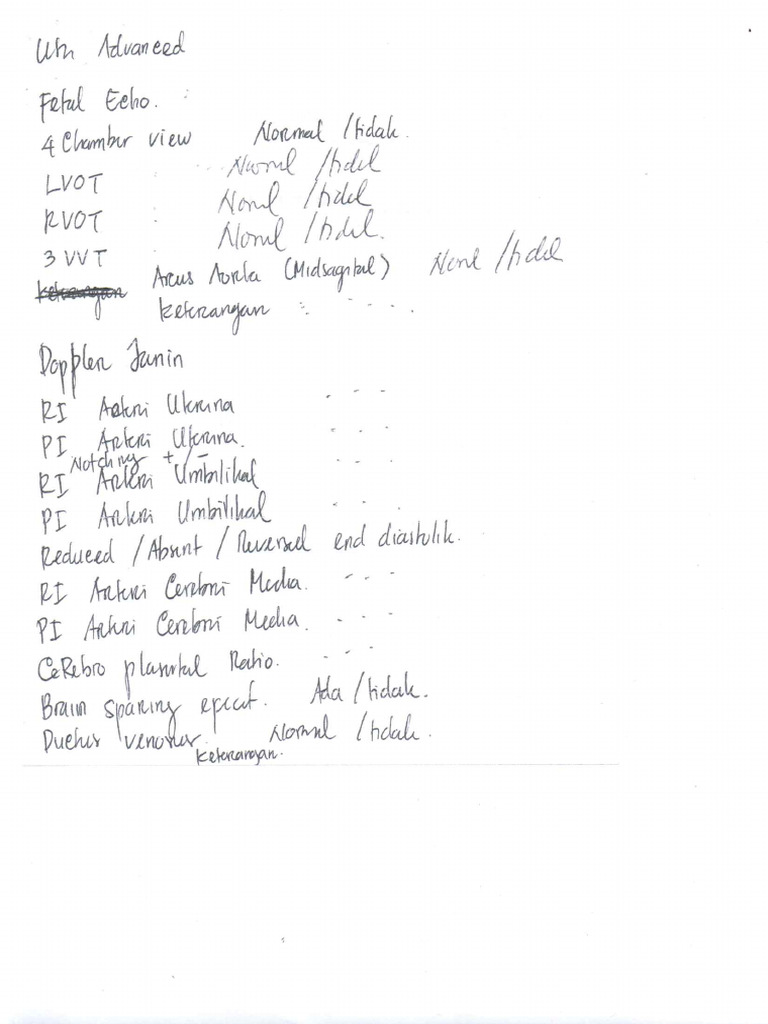 Advanced
Fetal Echo. :
4 Chamber view Normal / tidak.
LVOT : Normal / tidak
RVOT : Normal / tidak
3 VVT : Normal / tidak.
Arcus Aorta (Midsagital) Normal / tidak
keterangan : - - - -
Doppler Janin
RI Arteri Uterina - - -
PI Arteri Uterina. - - -
Notching + / -
RI Arteri Umbilikal - - -
PI Arteri Umbilikal - - -
Reduced / Absent / Reversed end diastolik.
RI Arteri Cerebri Media. - - -
PI Arteri Cerebri Media. - - -
CeRebro plasental Ratio. - - -
Brain sparing efect. Ada / tidak.
Ductus venosus. Normal / tidak.
keterangan.